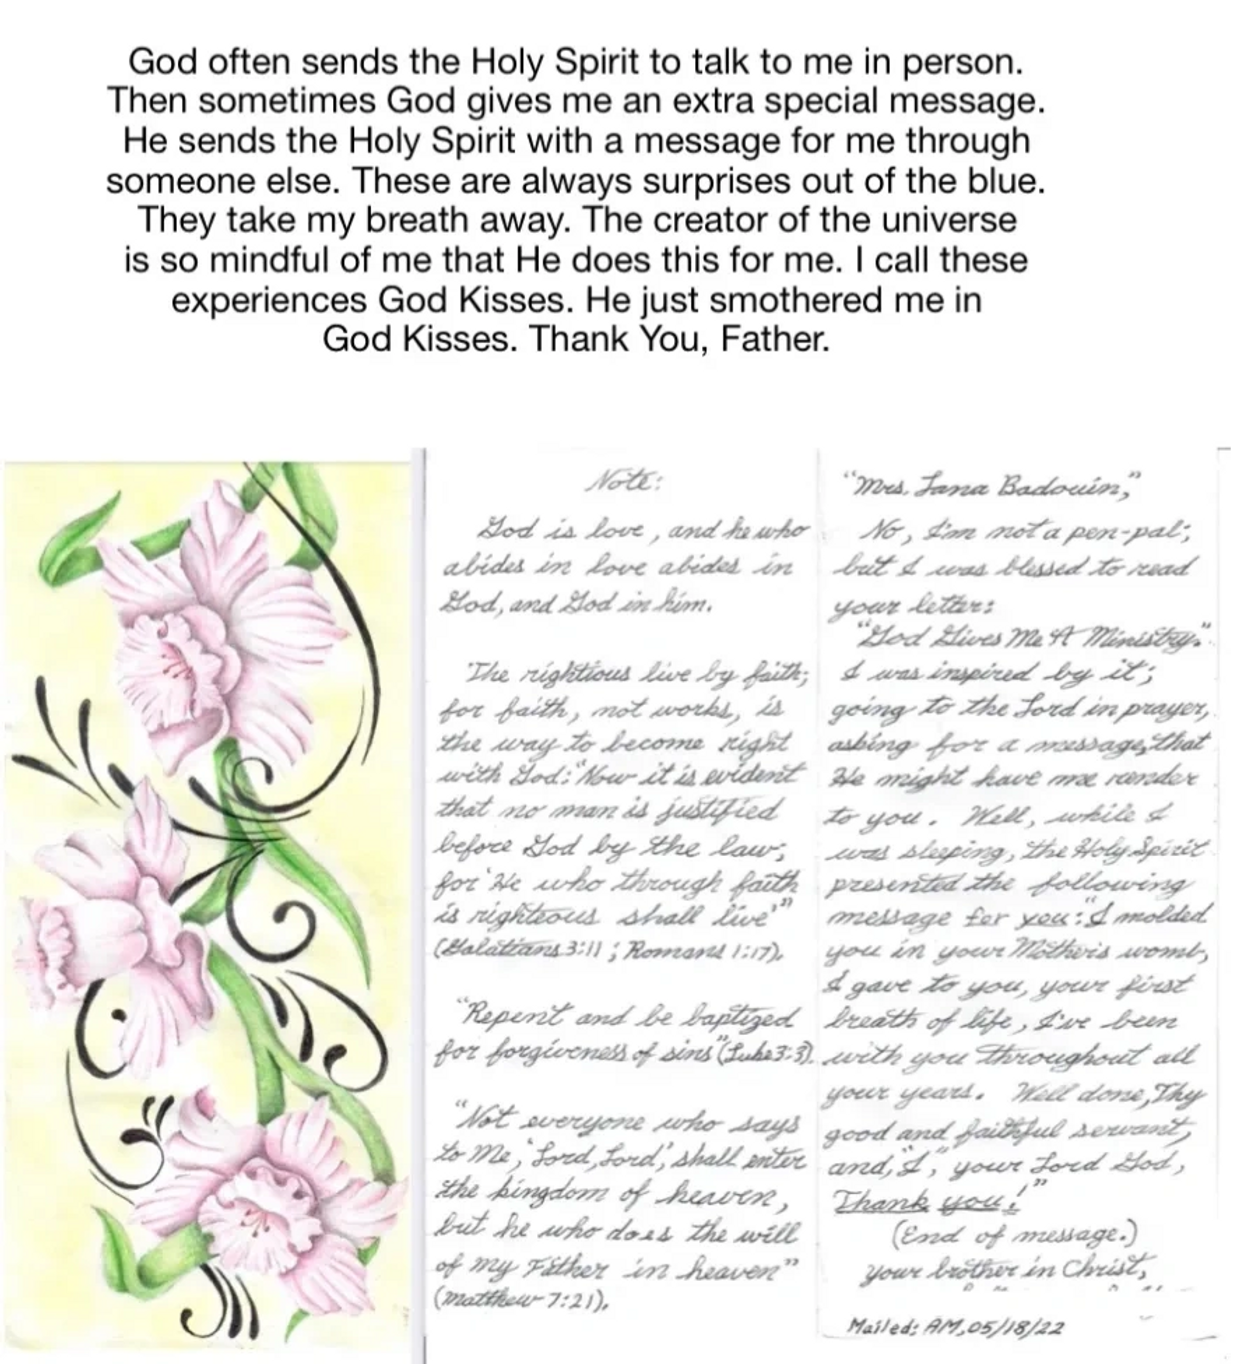 God often sends the Holy Spirit to talk to me in person.
Then sometimes God gives me an extra special message.
He sends the Holy Spirit with a message for me through
someone else. These are always surprises out of the blue.
They take my breath away. The creator of the universe
is so mindful of me that He does this for me. I call these
experiences God Kisses. He just smothered me in
God Kisses. Thank You, Father.
Note:
God is love, and he who
abides in love abides in
God, and God in him.
The rightious live by faith;
for faith, not works, is
the way to become right
with God: "Now it is evident
that no man is justified
before God by the law;
for 'He who through faith
is righteous shall live'"
(Galatians 3:11; Romans 1:17).
"Repent and be baptized
for forgiveness of sins" (Luke 3:3).
"Not everyone who says
to Me, 'Lord, Lord', shall enter
the kingdom of heaven,
but he who does the will
of my Father in heaven"
(Matthew 7:21).
"Mrs. Lana Badouin,"
No, I'm not a pen-pal;
but I was blessed to read
your letter:
"God Gives Me A Ministry."
I was inspired by it;
going to the Lord in prayer,
asking for a message, that
He might have me render
to you. Well, while I
was sleeping, the Holy Spirit
presented the following
message for you: "I molded
you in your Mother's womb,
I gave to you, your first
breath of life, I've been
with you throughout all
your years. Well done, Thy
good and faithful servant,
and, "I," your Lord God,
Thank you!"
(End of message.)
Your brother in Christ,
Mailed: AM, 05/18/22